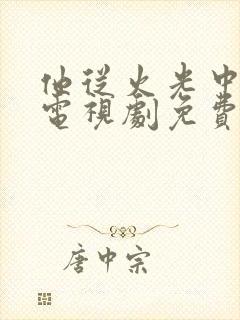 他從火光中
電視劇免費
唐中宗